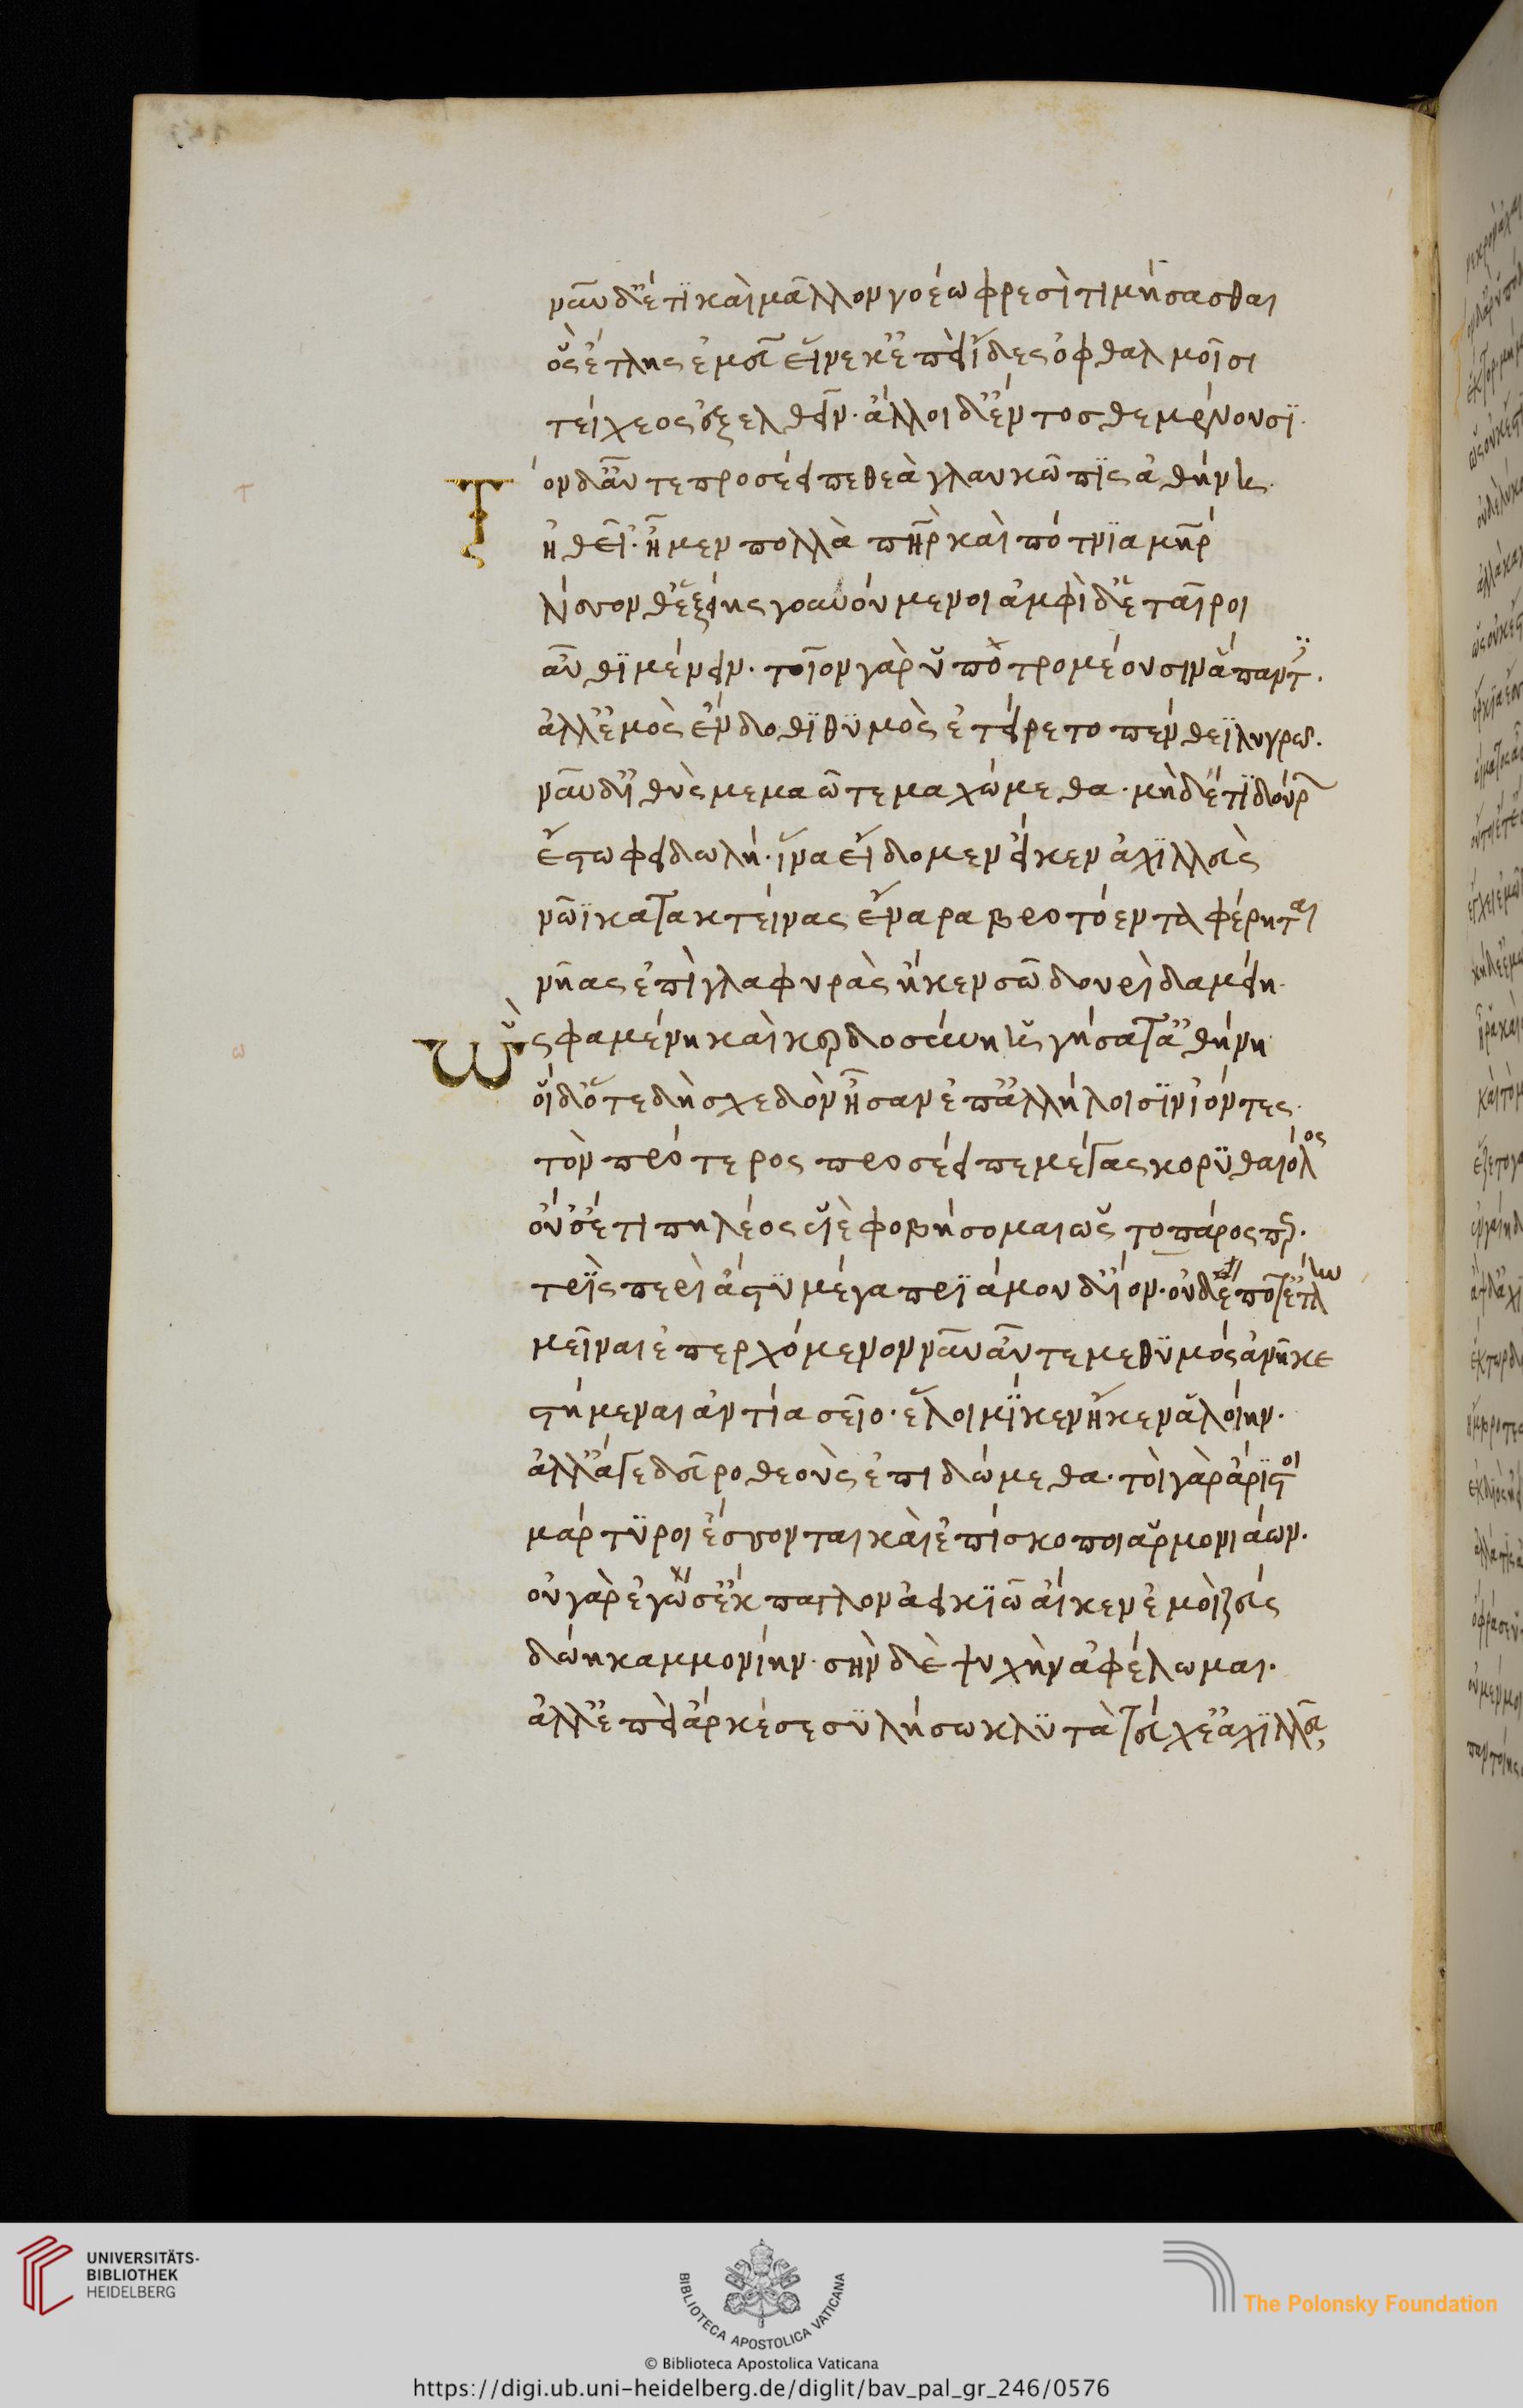 νῦν δ' ἔτι καὶ μᾶλλον νοέω φρεσὶ τιμήσασθαι
ὃς ἔτλης ἐμεῦ εἵνεκ' ἐπεὶ ἴδες ὀφθαλμοῖσι
τείχεος ἐξελθεῖν· ἄλλοι δ' ἔντοσθε μένουσι·
Τὸν δ' αὖτε προσέειπε θεὰ γλαυκῶπις ἀθήνη·
ἠθεῖ· ἦ μὲν πολλὰ πηρ καὶ πότνια μηρ
λίσσονθ' ἑξείης γουνούμενοι ἀμφὶ δ' ἑταῖροι
αὖθι μένειν· τοῖον γὰρ ὑποτρομέουσιν ἅπαντ·
ἀλλ' ἐμὸς ἔνδοθι θυμὸς ἐτείρετο πένθεϊ λυγρῶ·
νῦν δ' ἰθὺς μεμαῶτε μαχώμεθα· μὴ δέ τι δούρ
ἔστω φειδωλή· ἵνα εἴδομεν εἴ κεν ἀχιλλεὺς
νῶϊ κατακτείνας ἔναρα βροτόεντα φέρηται
νῆας ἐπὶ γλαφυρὰς ἤ κεν σῶ δουρὶ δαμείη·
Ὣς φαμένη καὶ κερδοσύνη ἡγήσατ' ἀθήνη
οἱ δ' ὅτε δὴ σχεδὸν ἦσαν ἐπ' ἀλλήλοισιν ἰόντες·
τὸν πρότερος προσέειπε μέγας κορυθαιόλος
οὔ σ' ἔτι πηλέος υἱὲ φοβήσομαι ὡς τοπάρος πρ·
τρὶς περὶ ἄστυ μέγα πριάμου δίον· οὐδέ ποτ' ἔτλην
μεῖναι ἐπερχόμενον νῦν αὖτέ με θυμὸς ἀνῆκε
στήμεναι ἀντία σεῖο· ἕλοιμί κεν ἤ κεν ἁλοίην·
ἀλλ' ἄγε δεῦρο θεοὺς ἐπιδώμεθα· τοὶ γὰρ ἄριστοι
μάρτυροι ἔσσονται καὶ ἐπίσκοποι ἁρμονιάων·
οὐ γὰρ ἐγώ σ' ἔκπαγλον ἀεικιῶ αἴ κεν ἐμοὶ ζεὺς
δώη καμμονίην· σὴν δὲ ψυχὴν ἀφέλωμαι·
ἀλλ' ἐπεὶ ἄρ κέ σε συλήσω κλυτὰ τεύχε' ἀχιλλεῦ
τ
ω
UNIVERSITÄTS-
BIBLIOTHEK
HEIDELBERG
BIBLIOTECA APOSTOLICA VATICANA
The Polonsky Foundation
© Biblioteca Apostolica Vaticana
https://digi.ub.uni-heidelberg.de/diglit/bav_pal_gr_246/0576